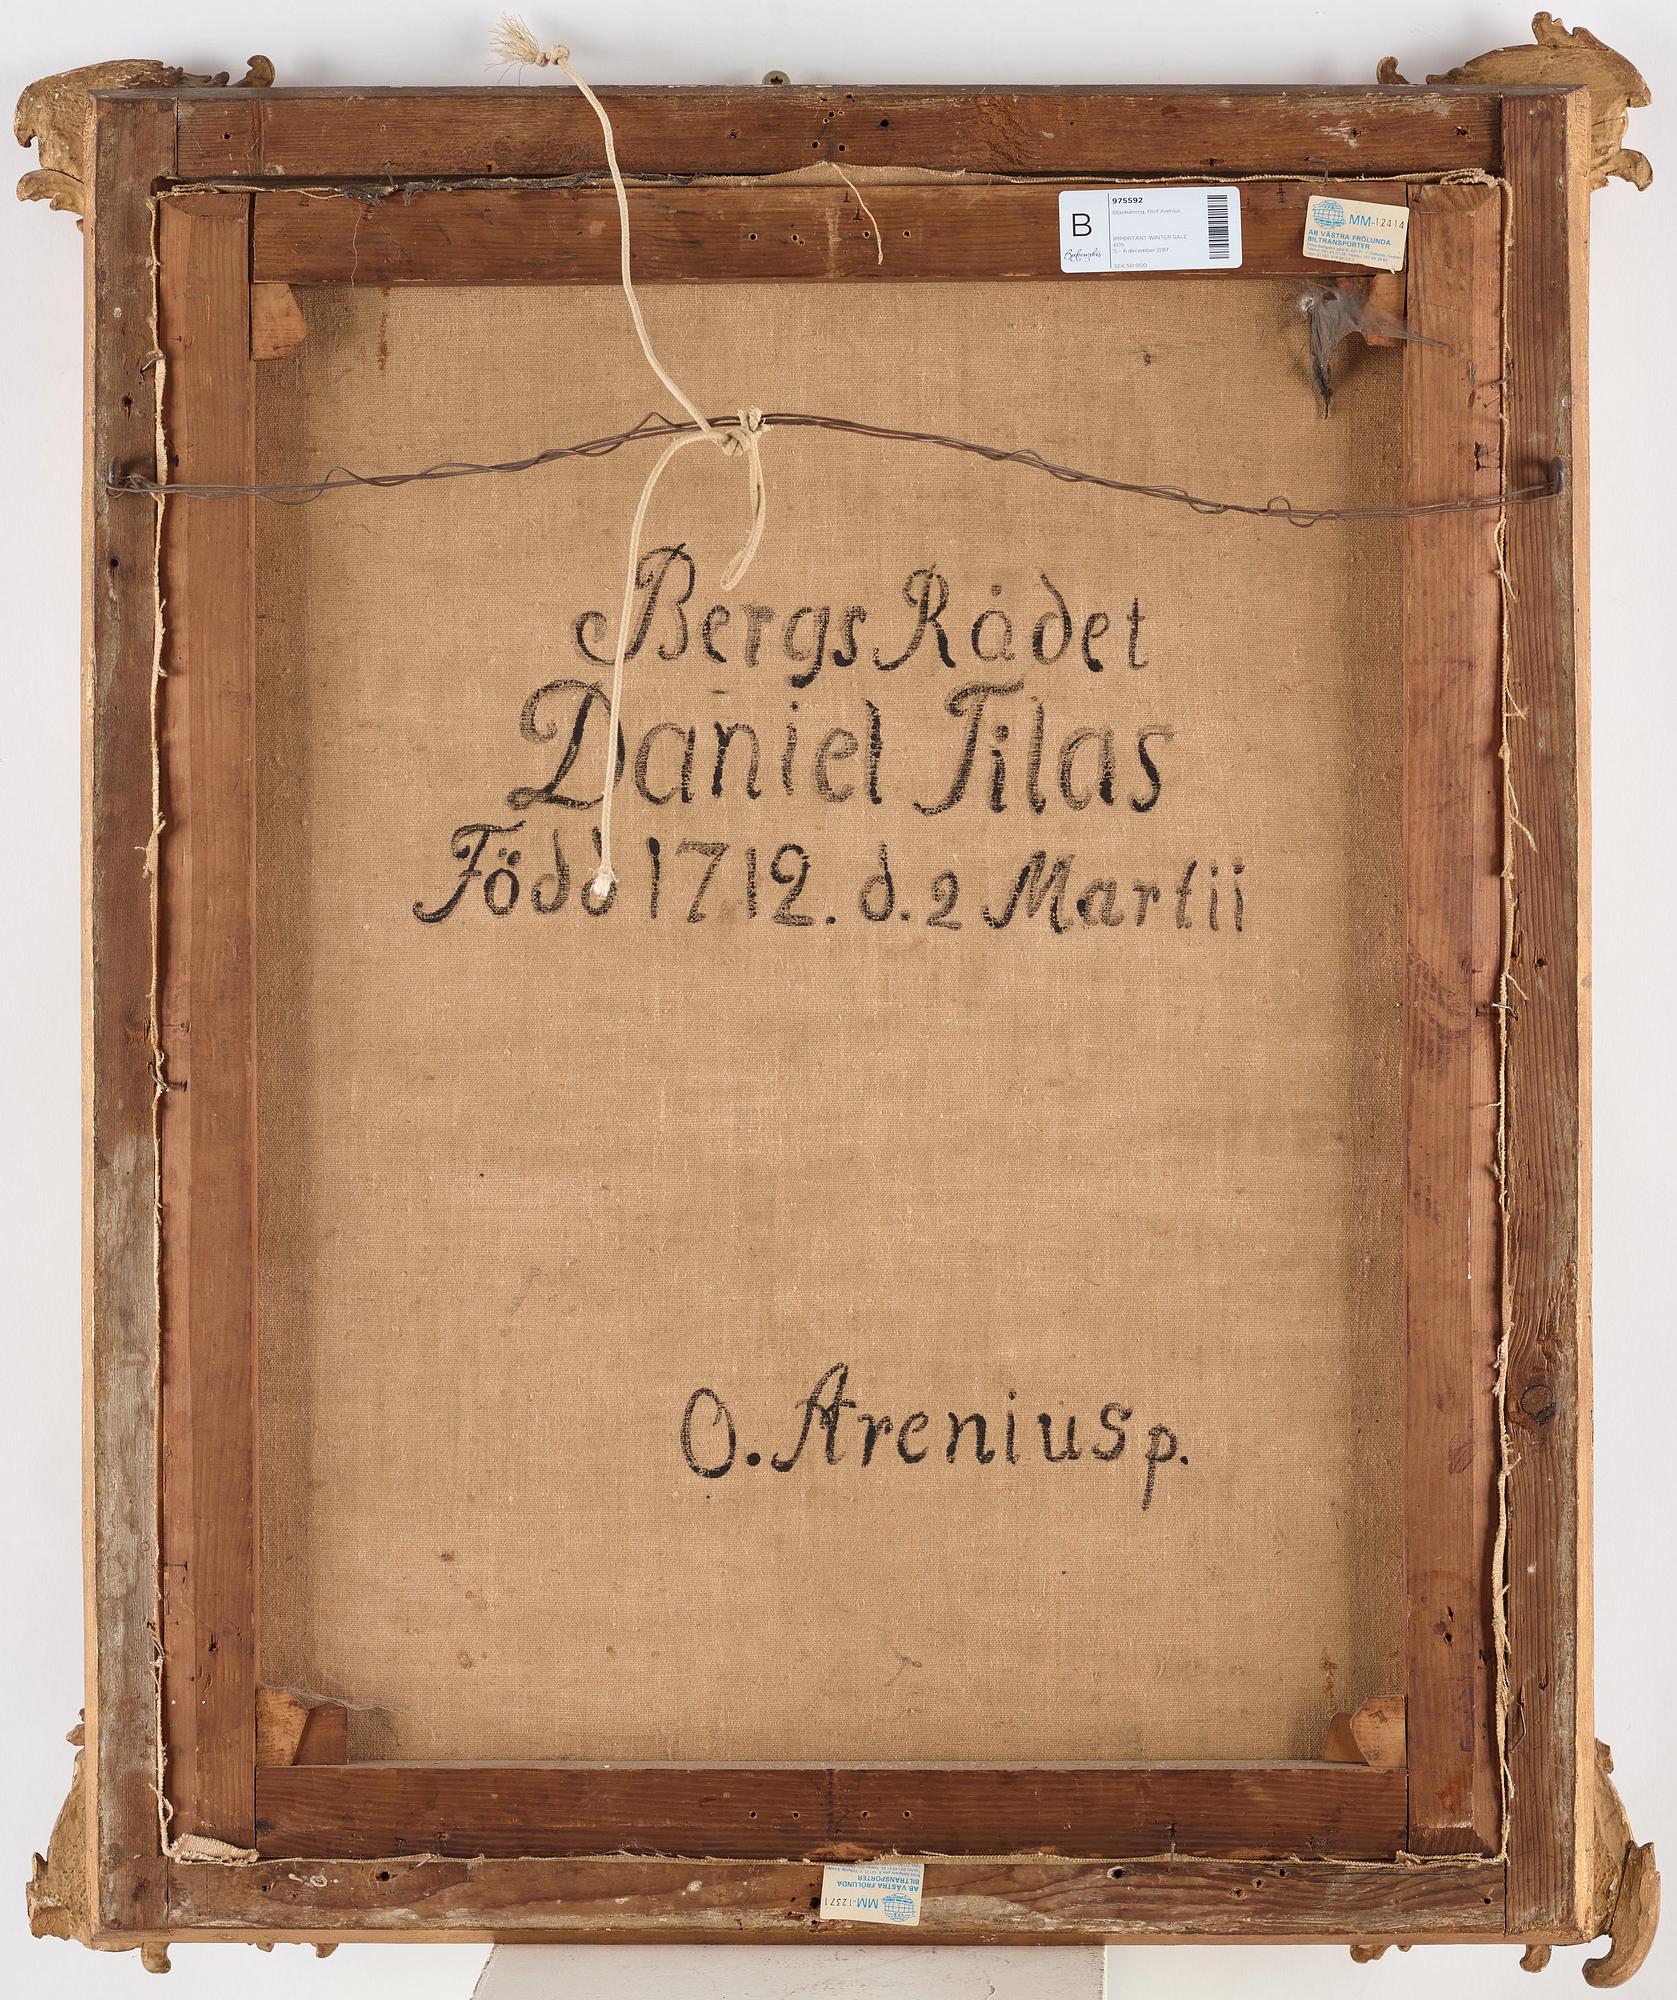 975592
B
Oljemålning, Olof Arenius
IMPORTANT WINTER SALE
605
5 - 6 december 2017
Bukowskis
SEK 50 000
MM-12414
AB VÄSTRA FRÖLUNDA
BILTRANSPORTER
Bergs Rådet
Daniel Tilas
Född 1712. d. 2 Martii
O. Arenius p.
MM-12371
AB VÄSTRA FRÖLUNDA
BILTRANSPORTER